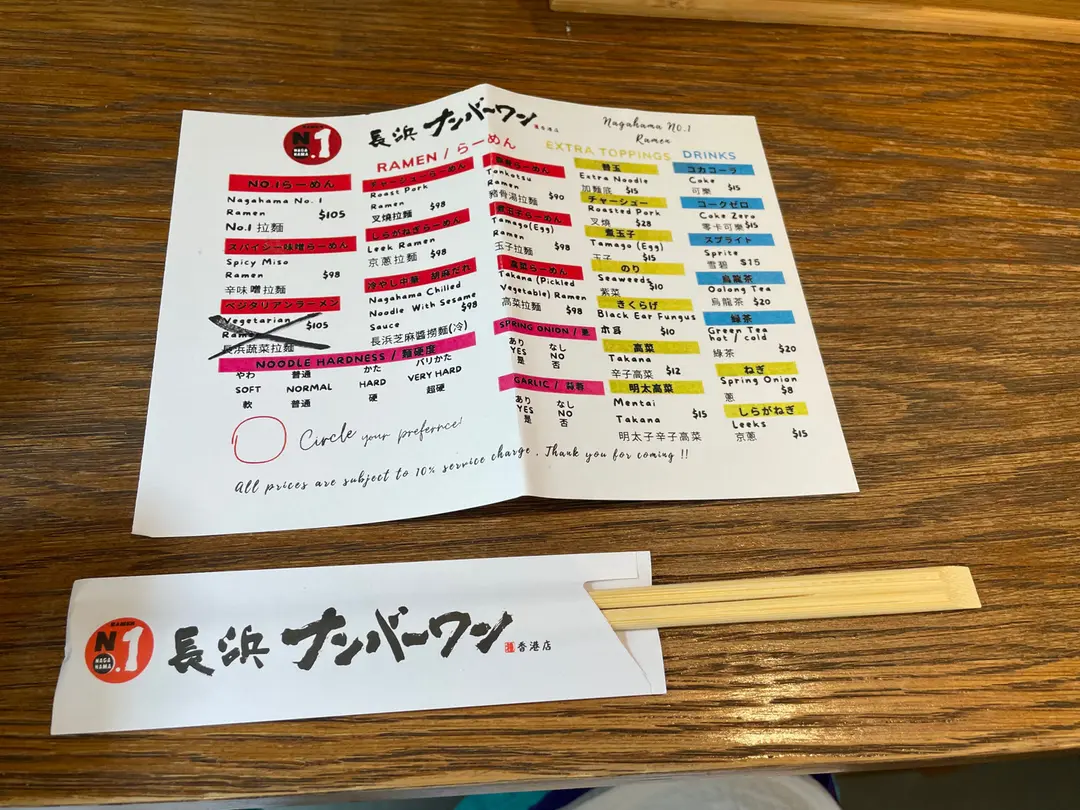 N
NAGA
HAMA
.1
長浜 ナンバーワン
香港店
Nagahama NO.1
Ramen
RAMEN / らーめん
NO.1らーめん
Nagahama No. 1
Ramen $105
No.1 拉麺
スパイシー味噌らーめん
Spicy Miso
Ramen $98
辛味噌拉麺
ベジタリアンラーメン
Vegetarian
Ramen $105
長浜蔬菜拉麺
チャーシューらーめん
Roast Pork
Ramen $98
叉燒拉麺
しらがねぎらーめん
Leek Ramen
京蔥拉麺 $98
冷やし中華 胡麻だれ
Nagahama Chilled
Noodle With Sesame
Sauce $98
長浜芝麻醬撈麵(冷)
らーめん
Tonkotsu
Ramen
豬骨湯拉麺 $90
煮玉子らーめん
Tamago(Egg)
Ramen
玉子拉麺 $98
高菜らーめん
Takana (Pickled
Vegetable) Ramen
高菜拉麺 $98
NOODLE HARDNESS / 麵硬度
やわ 普通 かた バリかた
SOFT NORMAL HARD VERY HARD
軟 普通 硬 超硬
SPRING ONION / 蔥
あり なし
YES NO
是 否
GARLIC / 蒜蓉
あり なし
YES NO
是 否
EXTRA TOPPINGS
替玉
Extra Noodle
加麵底 $15
チャーシュー
Roasted Pork
叉燒 $28
煮玉子
Tamago (Egg)
玉子 $15
のり
Seaweeds
紫菜 $10
きくらげ
Black Ear Fungus
木耳 $10
高菜
Takana
辛子高菜 $12
明太高菜
Mentai
Takana $15
明太子辛子高菜
DRINKS
コカコーラ
Coke
可樂 $15
コークゼロ
Coke Zero
零卡可樂 $15
スプライト
Sprite
雪碧 $15
烏龍茶
Oolong Tea
烏龍茶 $20
緑茶
Green Tea
hot / cold
綠茶 $20
ねぎ
Spring Onion
蔥 $8
しらがねぎ
Leeks
京蔥 $15
Circle your prefernce!
All prices are subject to 10% service charge . Thank you for coming !!
RAMEN
N
NAGA
HAMA
.1
長浜 ナンバーワン
香港店